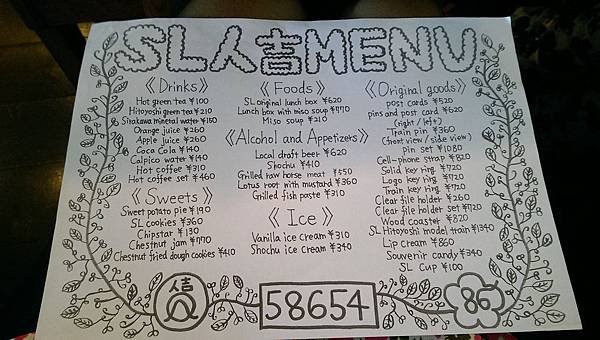 SL人吉MENU
《Drinks》
Hot green tea ¥100
Hitoyoshi green tea ¥210
Sirakawa mineral water ¥150
Orange juice ¥260
Apple juice ¥260
Coca Cola ¥140
Calpico water ¥140
Hot coffee ¥310
Hot coffee set ¥460
《Sweets》
Sweet potato pie ¥190
SL cookies ¥360
Chipstar ¥130
Chestnut jam ¥770
Chestnut fried dough cookies ¥410
《Foods》
SL original lunch box ¥620
Lunch box with miso soup ¥770
Miso soup ¥210
《Alcohol and Appetizers》
Local draft beer ¥620
Shochu ¥410
Grilled raw horse meat ¥550
Lotus root with mustard ¥360
Grilled fish paste ¥310
《Ice》
Vanilla ice cream ¥310
Shochu ice cream ¥340
《Original goods》
post cards ¥520
pins and post card ¥620
(right / left)
Train pin ¥360
(front view / side view)
pin set ¥1080
Cell-phone strap ¥820
Solid key ring ¥720
Logo key ring ¥720
Train key ring ¥720
Clear file holder ¥260
Clear file holder set ¥720
Wood coaster ¥820
SL Hitoyoshi model train ¥1340
Lip cream ¥860
Souvenir candy ¥340
SL Cup ¥100
58654
86